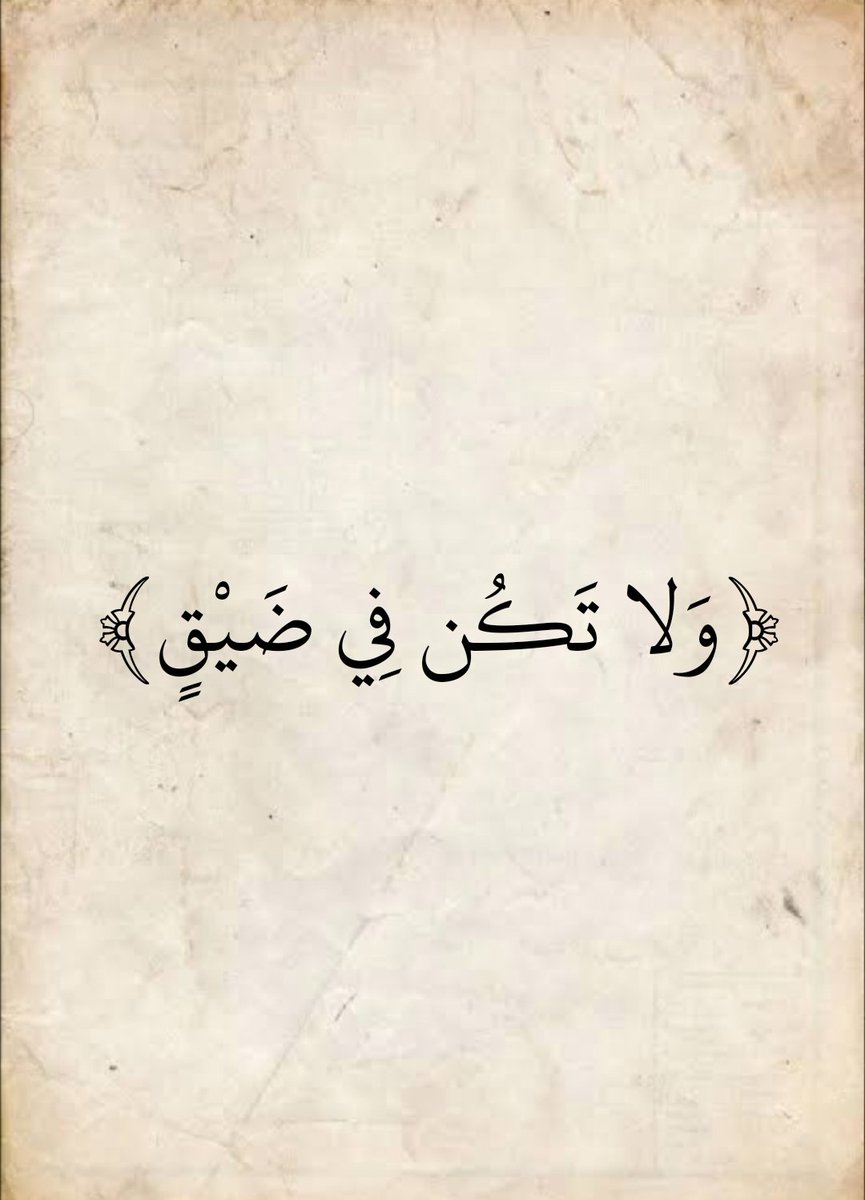 ﴿وَلا تَكُن فِي ضَيْقٍ﴾